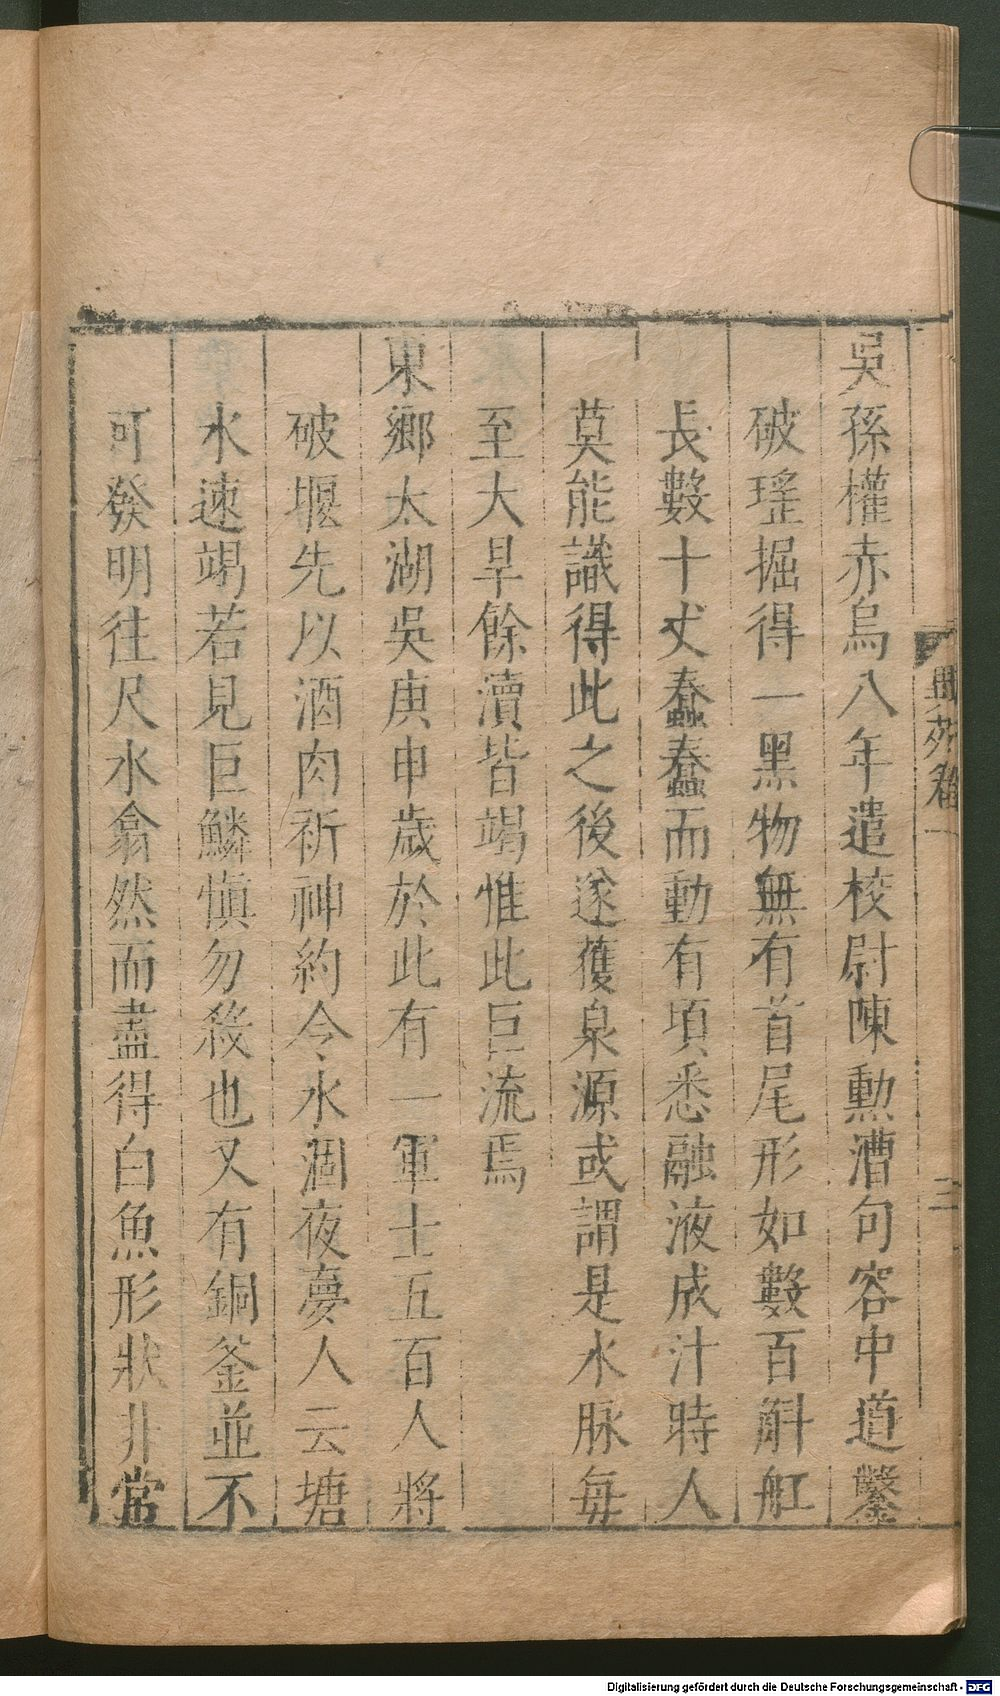 吳孫權赤烏八年遣校尉陳勳漕句容中道鑿
破瑬掘得一黑物無有首尾形如數百斛舡
長數十丈蠢蠢而動有頃悉融液成汁時人
莫能識得此之後遂獲泉源或謂是水脉每
至大旱餘瀆皆竭惟此巨流焉
東鄉太湖吳庚申歲於此有一軍士五百人將
破堰先以酒肉祈神約令水涸夜夢人云塘
水速竭若見巨鱗慎勿殺也又有銅釜並不
可發明往尺水翕然而盡得白魚形狀非常
異苑卷一
三
Digitalisierung gefördert durch die Deutsche Forschungsgemeinschaft - DFG